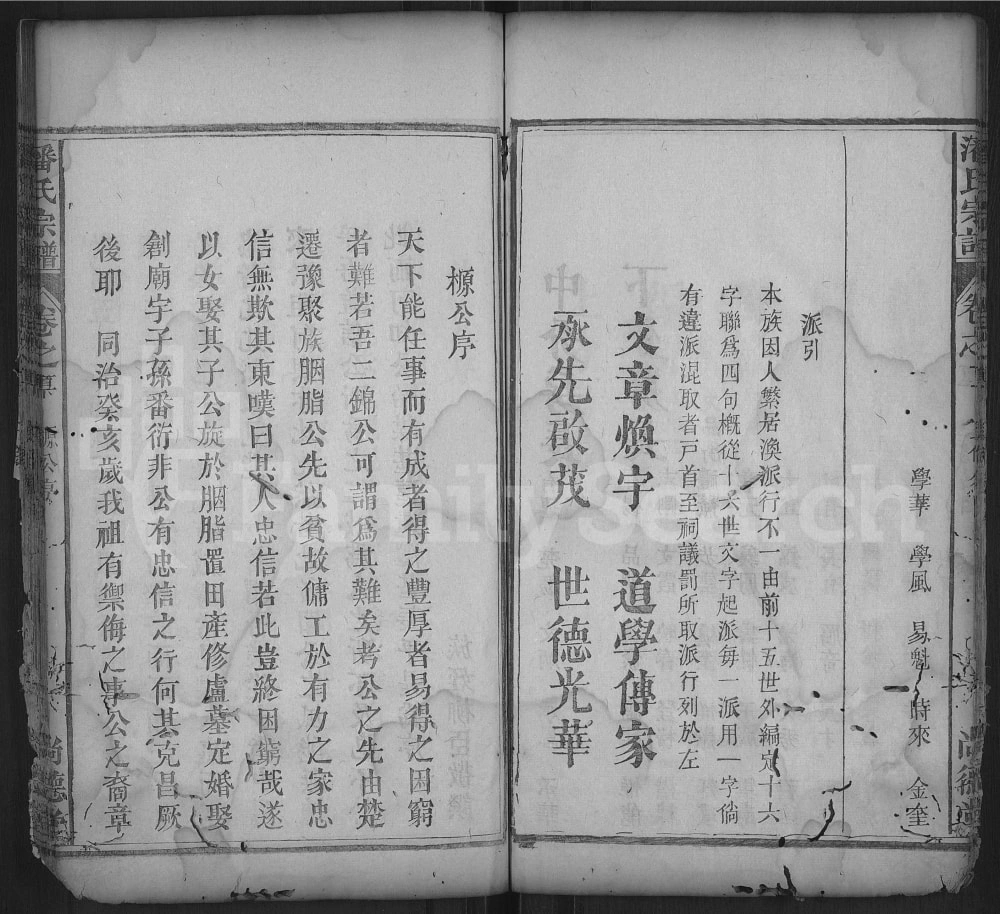 潘氏宗譜
卷之首
學華　學風　易魁　時來　金奎
派引
本族因人繁居渙派行不一由前十五世外編定十六
字聯為四句概從十六世文字起派每一派用一字倘
有違派混取者戸首至祠議罰所取派行列於左
文章煥宇　道學傳家
承先啟茂　世德光華
槱公序
天下能任事而有成者得之豐厚者易得之困窮
者難若吾二錦公可謂為其難矣考公之先由楚
遷豫聚族胭脂公先以貧故傭工於有力之家忠
信無欺其東嘆曰某人忠信若此豈終困窮哉遂
以女娶其子公旋於胭脂置田產修廬墓定婚娶
創廟宇子孫番衍非公有忠信之行何基克昌厥
後耶　同治癸亥歲我祖有禦侮之事公之裔章
潘氏宗譜
卷之首
公序
尚德堂
FamilySearch